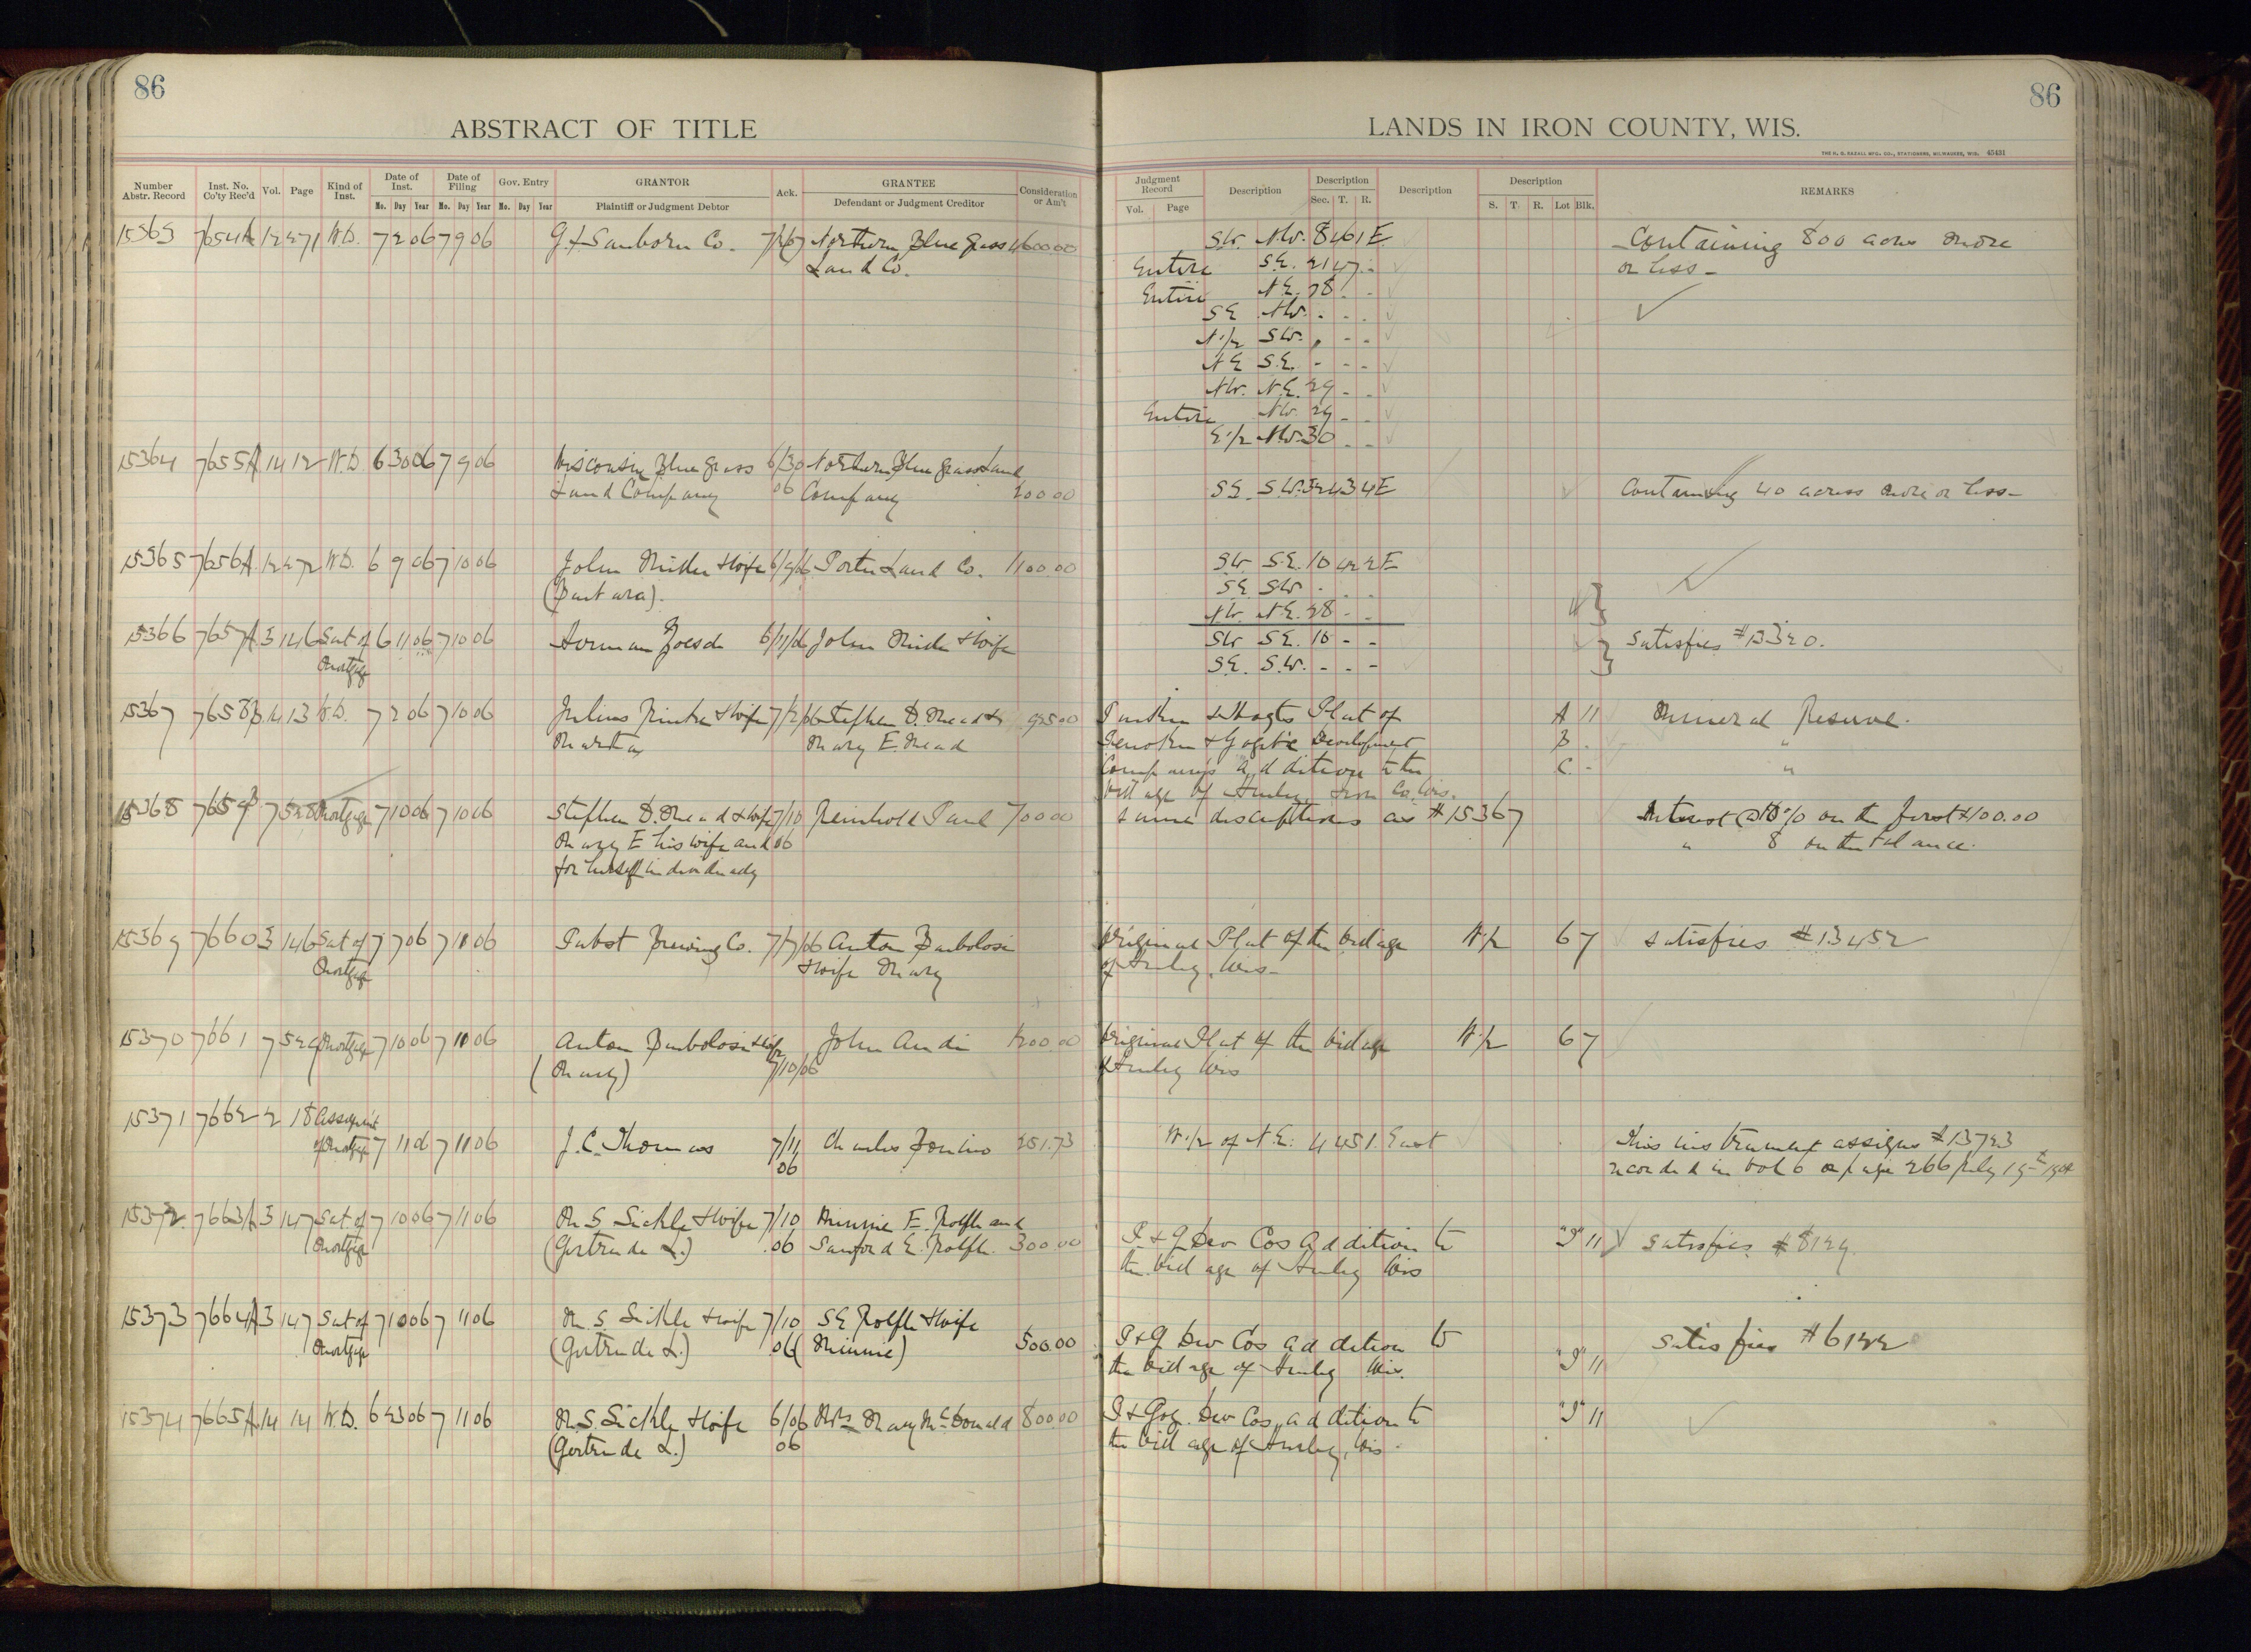 86
86
ABSTRACT OF TITLE
LANDS IN IRON COUNTY, WIS.
THE H. G. RAZALL MFG. CO., STATIONERS, MILWAUKEE, WIS. 45431
Number Abstr. Record
Inst. No. Co'ty Rec'd
Vol.
Page
Kind of Inst.
Date of Inst.
Mo. Day Year
Date of Filing
Mo. Day Year
Gov. Entry
Mo. Day Year
GRANTOR
Plaintiff or Judgment Debtor
Ack.
GRANTEE
Defendant or Judgment Creditor
Consideration or Am't
Judgment Record
Vol. Page
Description
Description
Sec. T. R.
Description
Description
S. T. R. Lot Blk.
REMARKS
15363 7654A 12 271 W.D. 7 2 06 7 9 06 Sanborn Co. Northern Blue Grass 4600.00 SW. NW. 8 46 1 E Containing 800 acres more
Land Co. Entire S.E. 21 47 - - or less -
Entire N.E. 28 - -
SE NW. - - -
N1/2 SW. - - -
NE S.E. - - -
NW. N.E. 29 - -
Entire NW. 29 - -
E1/2 NW. 30 - -
15364 7655A 14 12 W.D. 6 30 06 7 9 06 Wisconsin Blue Grass 6/30 Northern Blue Grass Land
Land Company 06 Company 200.00 SE. S.W. 32 43 4 E Containing 40 acres more or less -
15365 7656A 12 272 W.D. 6 9 06 7 10 06 John & Wife 6/9/06 Porter Land Co. 1100.00 SW. S.E. 10 42 2 E
(Barbara). SE SW - - -
NW. N.E. 28 - -
15366 7657A 3 146 Sat of 6 11 06 7 10 06 Herman 6/11/06 John & Wife SW SE. 10 - - Satisfies #13320.
Mortgage SE. S.W. - - -
15367 7658 14 13 W.D. 7 2 06 7 10 06 Julius & Wife 7/2/06 Stephen D. Mead & 925.00 Plat of A 11 Mineral Reserve.
Martha Mary E. Mead Development B - "
Company's Addition to the C - "
Village of Hurley Iron Co. Wis.
15368 7659 7 528 Mortgage 7 10 06 7 10 06 Stephen D. Mead & Wife 7/10 Reinhold Paul 700.00 Same descriptions as #15367 Interest @10% on the first $100.00
Mary E his wife and 06 " 8 on the balance.
for herself individually
15369 7660 3 146 Sat of 7 7 06 7 11 06 Pabst Brewing Co. 7/7/06 Anton Original Plat of the Village W1/2 6 7 Satisfies #13452
Mortgage & Wife Mary of Hurley, Wis -
15370 7661 7 529 Mortgage 7 10 06 7 11 06 Anton & Wife John Andi 1200.00 Original Plat of the Village W1/2 6 7
(Mary) 7/10/06 of Hurley Wis
15371 7662 2 18 Assignment
of Mortgage 7 11 06 7 11 06 J. C. Thomas 7/11 Charles 251.73 W1/2 of N.E. 4 45 1 East This instrument assigns #13723
06 recorded in Vol 6 on page 266 July
15372 7663A 3 147 Sat of 7 10 06 7 11 06 M. S. Sickle & Wife 7/10 Minnie E. Rolfe and
Mortgage (Gertrude L.) 06 Sanford E. Rolfe. 300.00 I & G Dev Cos Addition to "I" 11 Satisfies #8129
the Village of Hurley Wis
15373 7664A 3 147 Sat of 7 10 06 7 11 06 M. S. Sickle & Wife 7/10 SE Rolfe & Wife Satisfies #6122
Mortgage (Gertrude L.) 06 (Minnie) 500.00 I & G Dev Cos Addition to
the Village of Hurley Wis. "I" 11
15374 7665A 14 14 W.D. 6 23 06 7 11 06 M. S. Sickle & Wife 6/06 Mrs Mary McDonald 800.00 I & Gog. Dev Cos Addition to "I" 11
(Gertrude L.) 06 the Village of Hurley, Wis.